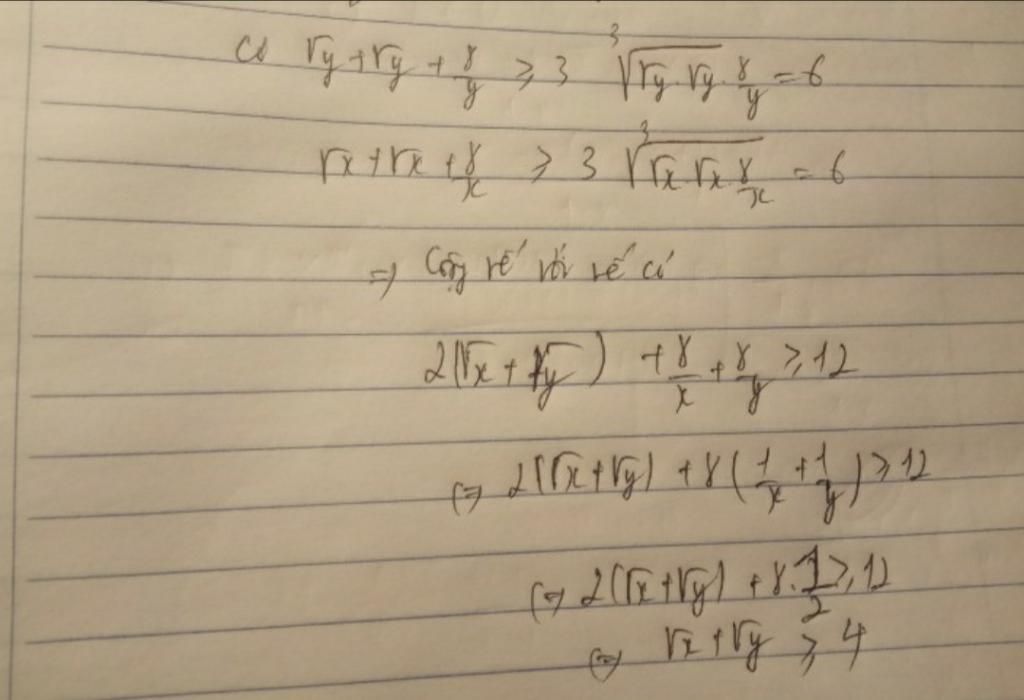 Có √y + √y + 8/y ≥ 3 ∛(√y.√y.8/y) = 6
√x + √x + 8/x ≥ 3 ∛(√x.√x.8/x) = 6
=> Cộng vế với vế có
2(√x + √y) + 8/x + 8/y ≥ 12
(=) 2(√x + √y) + 8(1/x + 1/y) ≥ 12
(=) 2(√x + √y) + 8.1/2 ≥ 12
(=) √x + √y ≥ 4